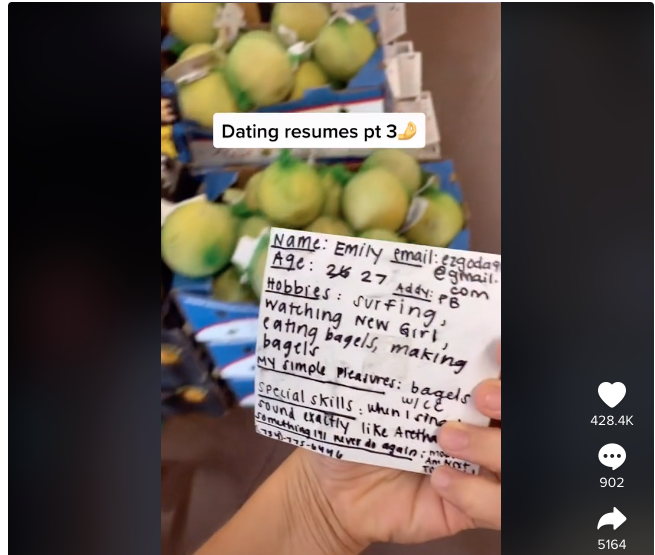 Dating resumes pt 3🤌
Name: Emily email: ezgoda9
@gmail.
com
Age: 26 27 Addy: PB
Hobbies: surfing,
watching New Girl,
eating bagels, making
bagels
My simple pleasures: bagels
w/cc
special skills: when I sing
sound exactly like Aretha
something I'll never do again:
428.4K
902
5164